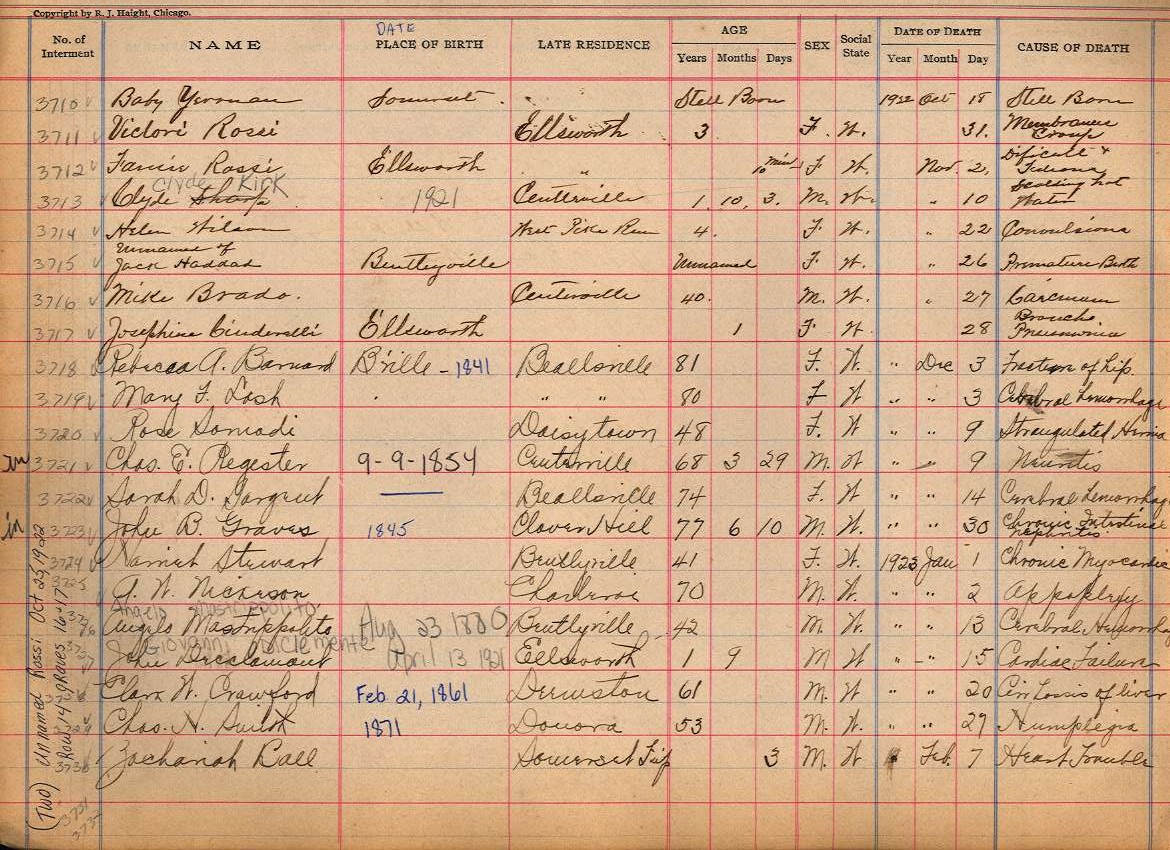 Copyright by R. J. Haight, Chicago.
No. of Interment NAME DATE PLACE OF BIRTH LATE RESIDENCE AGE Years Months Days SEX Social State DATE OF DEATH Year Month Day CAUSE OF DEATH
3710 Baby Yeroman Somerset. Still Born 1922 Oct 18 Still Born
3711 Victori Rossi Ellsworth 3 F. W. 31. Membraneis Croup
3712 Fannie Rossi Ellsworth " 10 min F W. Nov. 2,
Clyde Kirk
3713 Clyde Sharp 1921 Centerville 1, 10, 3. M. W. " 10 Scalding hot Water
3714 Helen Wilson West Pike Run 4. F. W. " 22 Convulsions
3715 Unnamed of Jack Haddad Bentleyville Unnamed F. W. " 26 Premature Birth
3716 Mike Brado. Centerville 40. M. W. " 27
3717 Josephine Cinderelli Ellsworth 1 F. W. 28 Broncho Pneumonia
3718 Rebecca A. Barnard B'ville - 1841 Beallsville 81 F. W. " Dec 3 Fracture of hip.
3719 Mary F. Lash " " 80 F W. " " 3 Cerebral Hemorrhage
3720 Rose Somadi Daisytown 48 F. W " " 9 Strangulated Hernia
in 3721 Chas. E. Regester 9-9-1854 Centerville 68 3 29 M. W " 9 Neuritis
3722 Sarah D. Sargent Beallsville 74 F. W " " 14 Cerebral Hemorrhag
in 3723 John B. Graves 1845 Clover Hill 77 6 10 M. W. " " 30 Chronic Nephritis
3724 Harriet Stewart Bentlyville 41 F. W. 1923 Jan 1 Chronic Myocardie
3725 A. W. Nickerson Charleroi 70 M. W. " " 2 Appoplexy
Angelo Mastrippolito
3726 Angelo Mastrippolito Aug 23 1880 Bentlyville 42 M. W. " " 13 Cerebral Hemorrha
Giovanni DiClemente
3727 John April 13 1921 Ellsworth 1 9 M W " " 15 Cardiac Failure
Clark W. Crawford Feb. 21, 1861 Deemston 61 M. W. " " 20 Cirrhosis of liver
3729 Chas. H. Smith 1871 Donora 53 M. W. " " 27 Humplegia
3730 Zachariah Ball Somerset Twp 3 M. W Feb. 7 Heart Trouble
3731
3732
(TWO) Unnamed Rossi Oct 25, 1922
Row 14 Graves 16 + 17